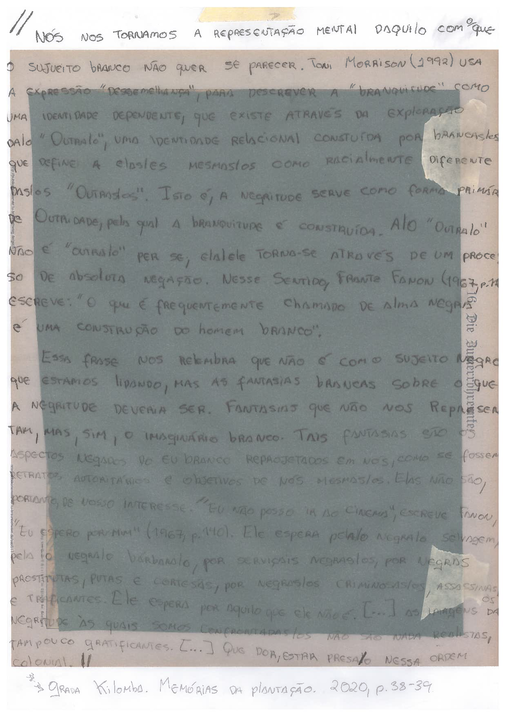 // NÓS NOS TORNAMOS A REPRESENTAÇÃO MENTAL DAQUILO COM O QUE
O SUJUEITO BRANCO NÃO QUER SE PARECER. TONI MORRISON (1992) USA
A EXPRESSÃO "DESSEMELHANÇA", PARA DESCREVER A "BRANQUITUDE" COMO
UMA IDENTIDADE DEPENDENTE, QUE EXISTE ATRAVÉS DA EXPLORAÇÃO
DA/O "OUTRA/O", UMA IDENTIDADE RELACIONAL CONSTUÍDA POR BRANCAS/OS
QUE DEFINE A ELAS/ES MESMAS/OS COMO RACIALMENTE DIFERENTE
DAS/OS "OUTRAS/OS". ISTO É, A NEGRITUDE SERVE COMO FORMA PRIMÁR
DE OUTRIDADE, PELA QUAL A BRANQUITUDE É CONSTRUÍDA. A/O "OUTRA/O"
NÃO É "OUTRA/O" PER SE, ELA/ELE TORNA-SE ATRAVÉS DE UM PROCE
SO DE ABSOLUTA NEGAÇÃO. NESSE SENTIDO, FRANTZ FANON (1967, p.
ESCREVE: "O QUE É FREQUENTEMENTE CHAMADO DE ALMA NEGRA
É UMA CONSTRUÇÃO DO HOMEM BRANCO".
ESSA FRASE NOS RELEMBRA QUE NÃO É COM O SUJEITO NEGRO
QUE ESTAMOS LIDANDO, MAS AS FANTASIAS BRANCAS SOBRE O QUE
A NEGRITUDE DEVERIA SER. FANTASIAS QUE NÃO NOS REPRESEN
TAM, MAS, SIM, O IMAGINÁRIO BRANCO. TAIS FANTASIAS SÃO OS
ASPECTOS NEGADOS DO EU BRANCO REPROJETADOS EM NÓS, COMO SE FOSSEM
RETRATOS AUTORITÁRIOS E OBJETIVOS DE NÓS MESMAS/OS. ELAS NÃO SÃO,
PORTANTO, DE NOSSO INTERESSE. "EU NÃO POSSO IR AO CINEMA", ESCREVE FANON,
"EU ESPERO POR MIM" (1967, p.140). ELE ESPERA PELA/O NEGRA/O SELVAGEM,
PELA/O NEGRA/O BÁRBARA/O, POR SERVIÇAIS NEGRAS/OS, POR NEGRAS
PROSTITUTAS, PUTAS E CORTESÃS, POR NEGRAS/OS CRIMINOSAS/OS, ASSASSINAS/OS
E TRAFICANTES. ELE ESPERA POR AQUILO QUE ELE NÃO É. [...] AS IMAGENS DA
NEGRITUDE ÀS QUAIS SOMOS CONFRONTADAS/OS NÃO SÃO NADA REALISTAS,
TAMPOUCO GRATIFICANTES. [...] QUE DOR, ESTAR PRESA/O NESSA ORDEM
COLONIAL. //
GRADA KILOMBA. MEMÓRIAS DA PLANTAÇÃO. 2020, p.38-39